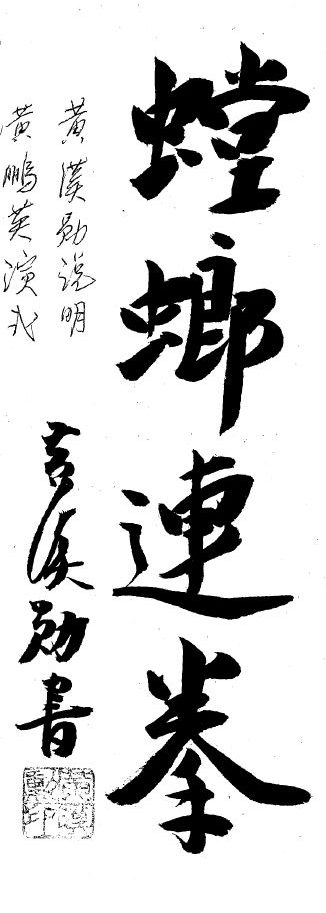 螳螂連拳
黃漢勛説明
黃鵬英演式
黃漢勛書